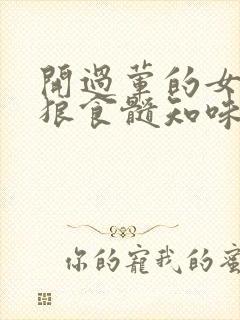 開過葷的女
狠食髓知味
你的寵我的蜜